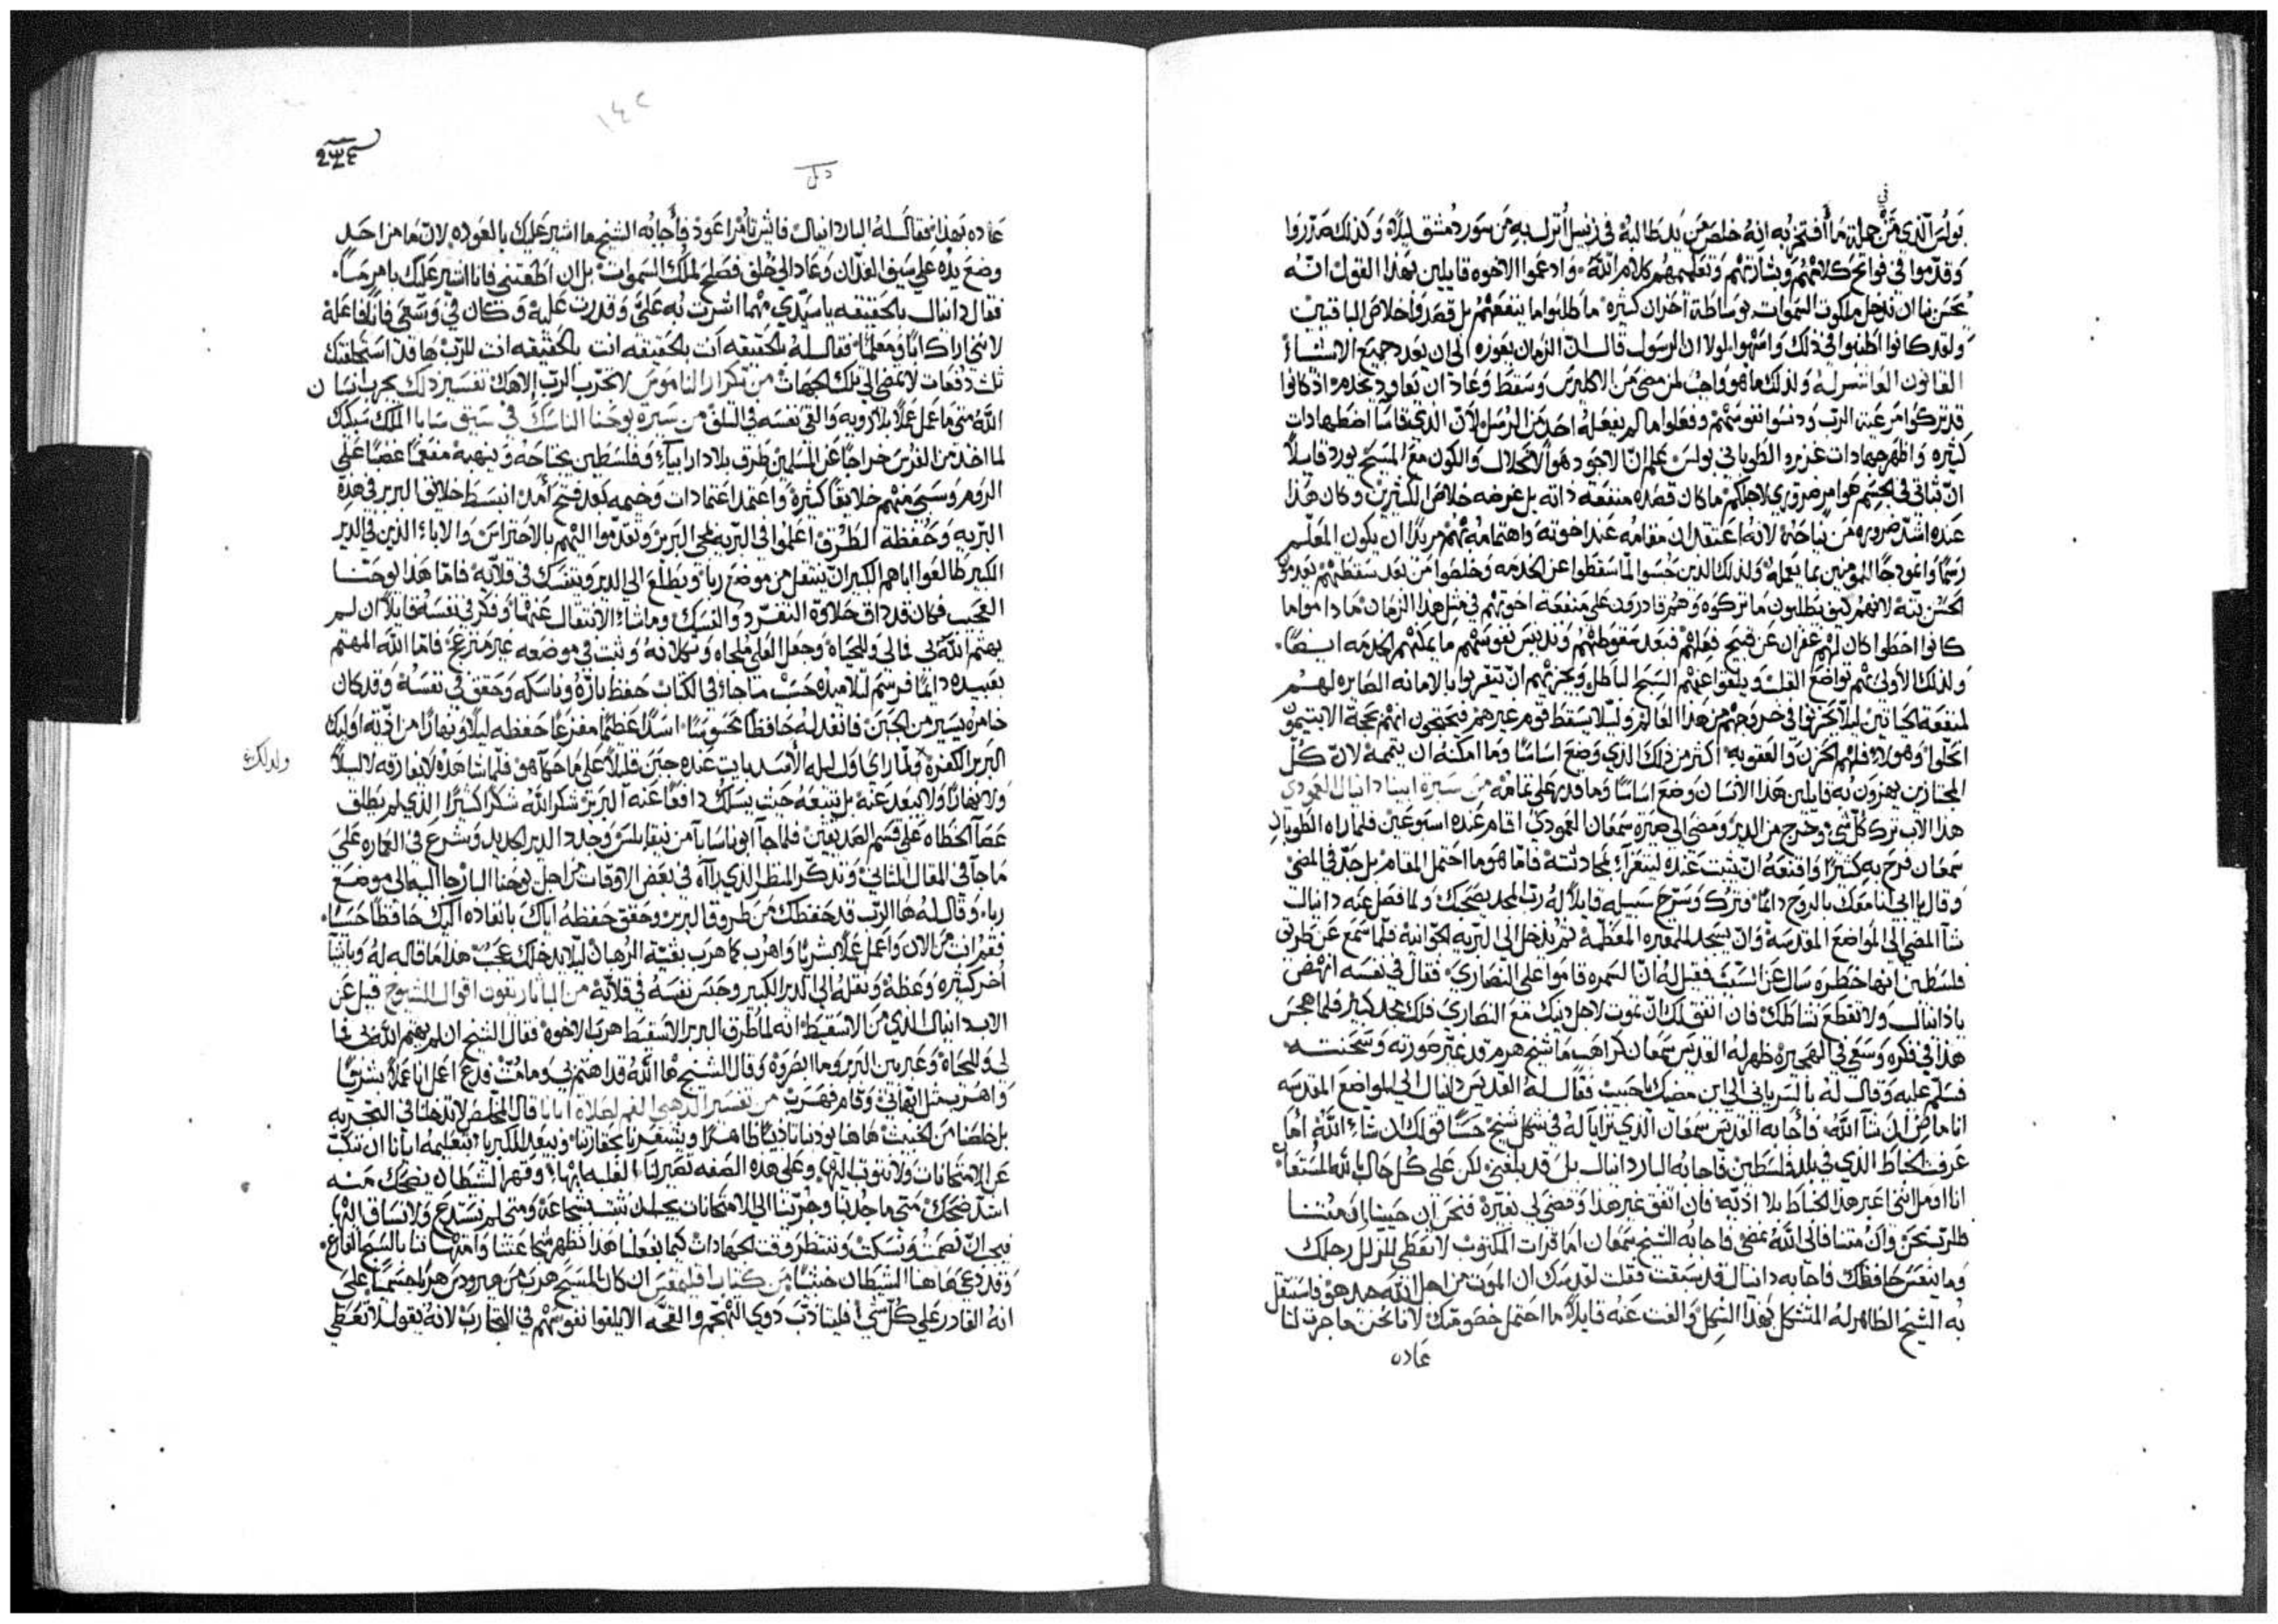 بولس الذي من جملة ما أفتخر به انه خلص من يد طالبيه في زنبيل أنزل به من سور دمشق ليلاً وكذلك
وقدموا في فواتح كلامهم وبشارتهم وتعليمهم كلام الله وادعوا الاخوه قايلين بهذا القول انه
يحسن بنا ان ندخل ملكوت السموات بوساطة احزان كثيره ما طلبوا ما ينفعهم بل قصدوا خلاص الباقين
ولقد كانوا اطنبوا في ذلك لولا ان الرسول قال ان الزمان يعوزه الى ان يعدد جميع
القانون ولذلك ما هو واجب لمن مضى من الاكليرس وسقط وعاد ان يعاود بخدم اذ كانوا
قد تركوا مرعية الرب ودنسوا نفوسهم وفعلوا ما لم يفعله احد من الرسل لأن الذي قاسا اضطهادات
كثيره واظهر جهادات غزيره الطوباني بولس بعلم ان الاجود هو الانحلال والكون مع المسيح يورد قايلاً
ان ثباتي في الجسم هو امر ضروري لاجلكم ما كان قصده منفعة ذاته بل غرضه خلاص الكثيرين وكان هذا
عنده اشد ضروره من نياحته لانه اعتقد ان مقامه عند اخوته واهتمامه بهم مريدًا ان يكون المعلم
رسمًا وانموذجًا للمومنين بما يعمله ولذلك الذين حبسوا لما سقطوا عن الخدمه وخلصوا من بعد سقطتهم بعد
لانهم كيف يطلبون ما تركوه وهم قادرون على منفعة اخوتهم في مثل هذا الزمان ما داموا ما
كانوا اخطوا كان لهم غفران عن قبح فعلهم فبعد سقوطهم وتدنيس نفوسهم ما يمكنهم الخدمه ايضًا
ولذلك الأولى بهم تواضع القلب ويلقوا عنهم السبح الباطل ويجزيهم ان يتقربوا بالامانه الصايره لهم
لمنفعة الجانبين ليلا يحزنوا في خروجهم من هذا العالم وليلا يسقط قوم غيرهم فيحتجون انهم بحجة
انحلوا وهولا فلهم الحزن والعقوبه اكثر من ذلك الذي وضع اساسًا وما امكنه ان يتممه لان كل
المجتازين يهزون به قايلين هذا الانسان وضع اساسًا وما قدر على تمامه من سيرة ابينا دانيال العمودي
هذا الاب ترك كل شي وخرج من الدير ومضى الى صيرة سمعان العمودي اقام عنده اسبوعين فلما راه الطوبان
سمعان فرح به كثيرًا واقنعه ان يثبت عنده بمحادثته فاما هو ما احتمل المقام بل جد في المضي
وقال يا ابي انا معك بالروح دايمًا فتركه وسرح سبيله قايلاً له رب المجد يصحبك ولما فصل عنه دانيال
شا المضي الى المواضع المقدسة وان يسجد للمقبره المعظمة ثم يدخل الى البريه الجوانية فلما سمع عن طريق
فلسطين انها خطره سال عن السبب فقيل له ان السمره قاموا على النصارى فقال في نفسه انهض
يا دانيال ولا تقطع نشاطك فان اتفق لك ان تموت لاجل دينك مع النصارى فلك مجد كبير فلما هجس
هذا في فكره وسعى في الهجيره ظهر له القديس سمعان كراهب ما شيخ هرم قد غير صورته وسحنته
فسلم عليه وقال له بالسرياني الى اين مضيك يا حبيب فقال له القديس دانيال الى المواضع المقدسه
انا ماض ان شا الله فأجابه القديس سمعان الذي تراياً له في شكل شيخ حسنًا قولك ان شاء الله أما
عرفت الخباط الذي في بلد فلسطين فاجابه البار دانيال بل قد بلغني لكن على كل حال بالله المستعان
انا اومل انني اعبر هذا الخباط بلا اذيه فان اتفق غير هذا وقضي لي بغيره فنحن ان حيينا او متنا
فللرب نحن وان متنا فالى الله نمضي فاجابه الشيخ سمعان اما قرات المكتوب لا تعطي للزلل رجلك
وما ينعس حافظك فاجابه دانيال قد سبقت فقلت لقد ان الموت من اجل الله هو
به الشيخ الظاهر له المتشكل بهذا الشكل والفت عنه قايلاً ما احتمل خصومتك لانا نحن ما جرت لنا
عاده
١٤٢
عاده بهذا فقال له البار دانيال فايش تأمر اعود فأجابه الشيخ ما اشير عليك بالعوده لان ما من احد
وضع يده على سيف الفدان وعاد الى خلف فصلح لملك السموات بل ان اطعتني فانا اشير عليك بامر
فقال دانيال بالحقيقه يا سيدي مهما اشرت به علي وقدرت عليه وكان في وسعي فانا فاعله
لانني اراك ابًا ومعلمًا فقال له بالحقيقه انت بالحقيقه انت بالحقيقه انت للرب ها قد استحلفتك
ثلث دفعات لا تمضي الى تلك الجهات من تكرار الناموس لا تجرب الرب الاهك تفسير ذلك يجرب انسان
الله متى ما عمل عملاً بلا رويه والقى نفسه في التلف من سيرة يوحنا الناسك في سيق سابا الملك
لما اخذ من الفرس خراجًا عن المسلمين طرق بلاد ارابيا وفلسطين يجتاحه وينهبه مفعمًا غضبًا على
الروم وسبى منهم خلايقًا كثيرة واعتمد اعتمادات وخيمه بعد فتح امد انبسط خلايق البربر في هذه
البريه وحفظة الطرق اعلموا في البريه بمجي البربر وتقدموا اليهم بالاحتراس والاباء الذين في الدير
الكبير طالعوا اباهم الكبير ان ينتقل من موضع ربا ويطلع الى الدير ويتنسك في قلايه فاما هذا يوحنا
العجيب فكان قد ذاق حلاوة التفرد والنسك وما شاء الانتقال عنها وفكر في نفسه قايلاً ان لم
يهتم الله بي فما لي وللحياه وجعل العلي ملجاه وتكلانه وثبت في موضعه غير منزعج فاما الله المهتم
بعبيده دايمًا فرسم ليلا ميده حسب ما جاء في الكتاب حفظ باره وناسكه وحقق في نفسه وقد كان
خامره يسير من الجبن فانفد له حافظًا محسوسًا اسدًا عظيمًا مفزعًا حفظه ليلاً ونهارًا من اذية اوليك
البربر الكفره ولما راى اول ليله الأسد بايت عنده جبن قليلاً على ما حكاه هو فلما شاهده لا يفارقه لا ليلاً
ولدلك
ولا نهارًا ولا يبعد عنه بل يتبعه حيث يسلك دافعًا عنه البربر شكر الله شكرًا كثيرًا الذي لم يطلق
عصا الخطاه على قسم الصديقين فلما جا ابونا سابا من نيقابلس وجدد الدير الجديد وشرع في العماره على
ما جا في المقال الثاني وتذكر المنظر الذي راه في بعض الاوقات من اجل يوحنا البار جا اليه الى موضع
ربا وقال له ها الرب قد حفظك من طروق البربر وحقق حفظه اياك بانفاده اليك حافظًا
فقم انت من الان واعمل عملاً بشريًا واهرب كما هرب بقية الرهبان ليلا يدخلك عجب هذا ما قاله له وباشيا
أخر كثيره وعظه ونقله الى الدير الكبير وحبس نفسه في قلايه من الباناريقون اقوال الشيوخ قيل عن
الاب دانيال الذي من الاسقيط انه لما طرق البربر الاسقيط هرب الاخوه فقال الشيخ ان لم يهتم الله بي فما
لي وللحياه وعبر بين البربر وما ابصروه وقال الشيخ ها الله قد اهتم بي وما مت فدع اعمل انا عملاً بشريًا
واهرب مثل ابهاتي وقام فهرب من تفسير الذهبي الفم لصلاة ابانا قال المخلص لا تدخلنا في التجربه
بل خلصنا من الخبيث هاهنا يودبنا تاديبًا ظاهرًا ويشعرنا بحقارتنا ويبعد للكبريا بتعليمه ايانا ان
عن الامتحانات ولا نتوثب اليها وعلى هذه الصفه تصير لنا الغلبه ابها وقهر الشيطان يضحك منه
اشد ضحك متى ما جذبنا وجررنا الى الامتحانات يجب ان نثبت بشجاعة ومتى لم نستدع ولا نساق اليها
فيجب ان نصمت ونسكت وننتظر وقت الجهادات كيما بفعلنا هذا تظهر شجاعتنا بالسبح الفارغ
وقد دعى هاهنا الشيطان خبيثًا من كتاب اقليمقس ان كان المسيح هرب من هيرودس هربًا جسميًا على
انه القادر على كل شي فليتادب ذوي التهجم والقحه الا يلقوا نفوسهم في التجارب لانه يقول لا تعطي